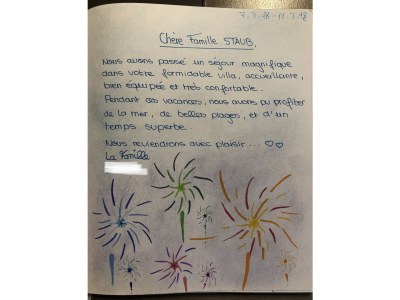 Chère Famille STAUB,
Nous avons passé un séjour magnifique
dans votre formidable villa, accueillante,
bien équipée et très confortable.
Pendant ses vacances, nous avons pu profiter
de la mer, de belles plages, et d'un
temps superbe.
Nous reviendrons avec plaisir... ♡♡
La Famille